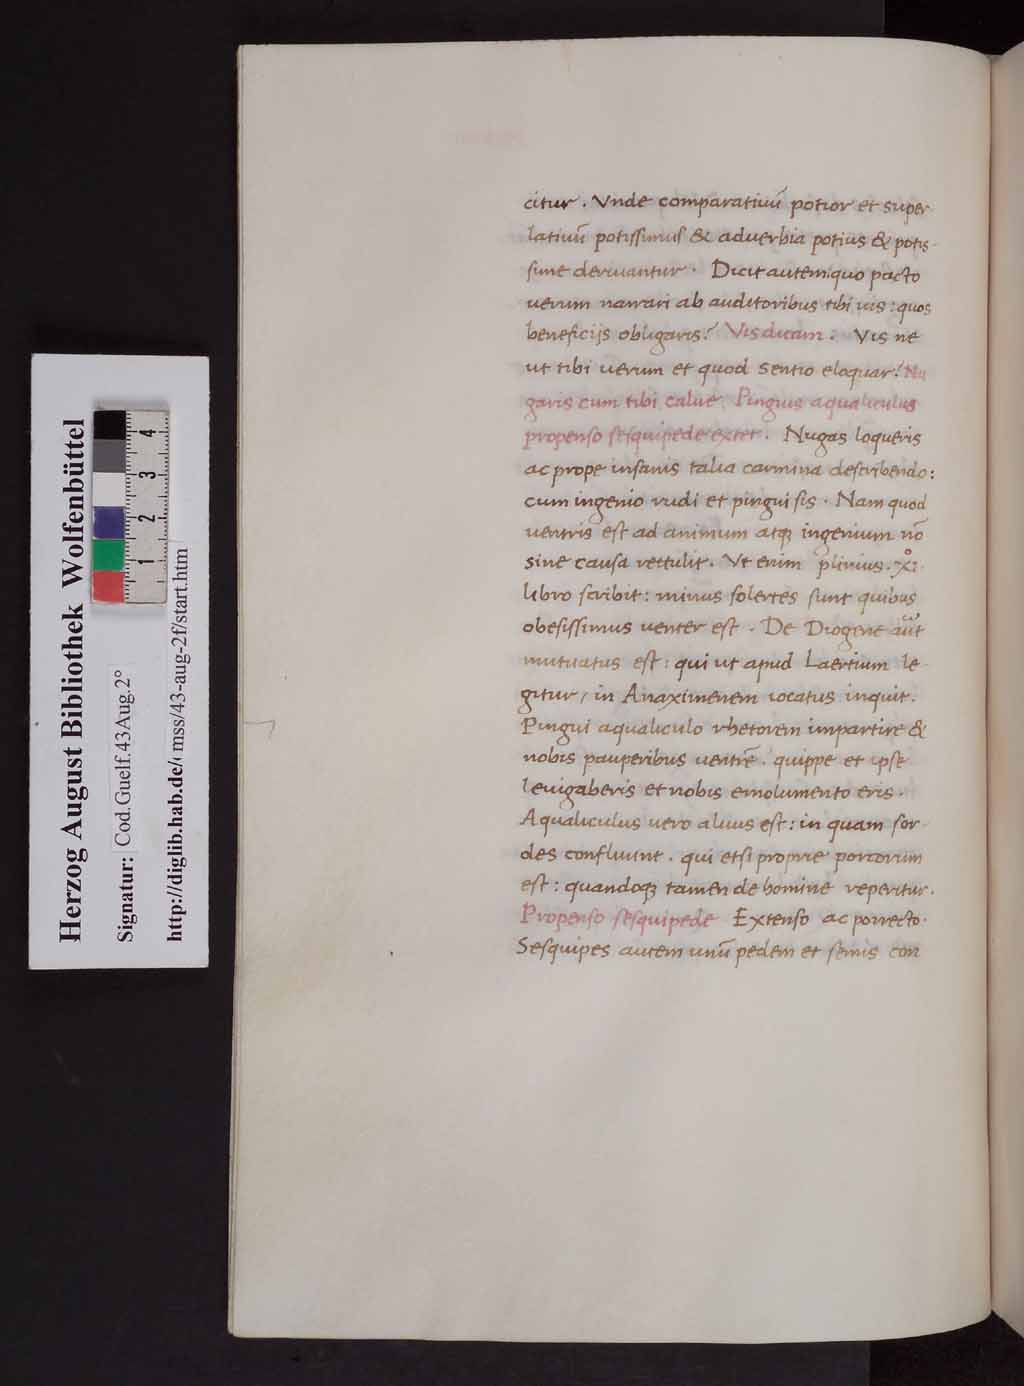 citur . Vnde comparatiuū potior et super
latiuū potissimus & aduerbia potius & potis-
sime deriuantur . Dicit autem: quo pacto
uerum narrari ab auditoribus tibi uis : quos
beneficijs obligaris? Vis dicam . Vis ne
ut tibi uerum et quod sentio eloquar? Nu
garis cum tibi calue . Pinguis aqualiculus
propenso sesquipede extet . Nugas loqueris
ac prope insanis talia carmina describendo :
cum ingenio rudi et pingui sis . Nam quod
uentris est ad animum atqꝫ ingenium nō
sine causa rettulit . Vt enim plinius . xi°
libro scribit : minus solertes sunt quibus
obesissimus uenter est . De Diogene aūt
mutuatus est : qui ut apud Laertium le-
gitur / in Anaximenem iocatus inquit .
Pingui aqualiculo rhetorem impartire &
nobis pauperibus uentrē . quippe et ipse
leuigaberis et nobis emolumento eris .
Aqualiculus uero aluus est : in quam sor-
des confluunt . qui etsi proprie porcorum
est : quandoqꝫ tamen de homine reperitur .
Propenso sesquipede Extenso ac porrecto .
Sesquipes autem unū pedem et semis con
Herzog August Bibliothek Wolfenbüttel
Signatur: Cod.Guelf.43Aug.2°
http://diglib.hab.de/ mss/43-aug-2f/start.htm
1 2 3 4